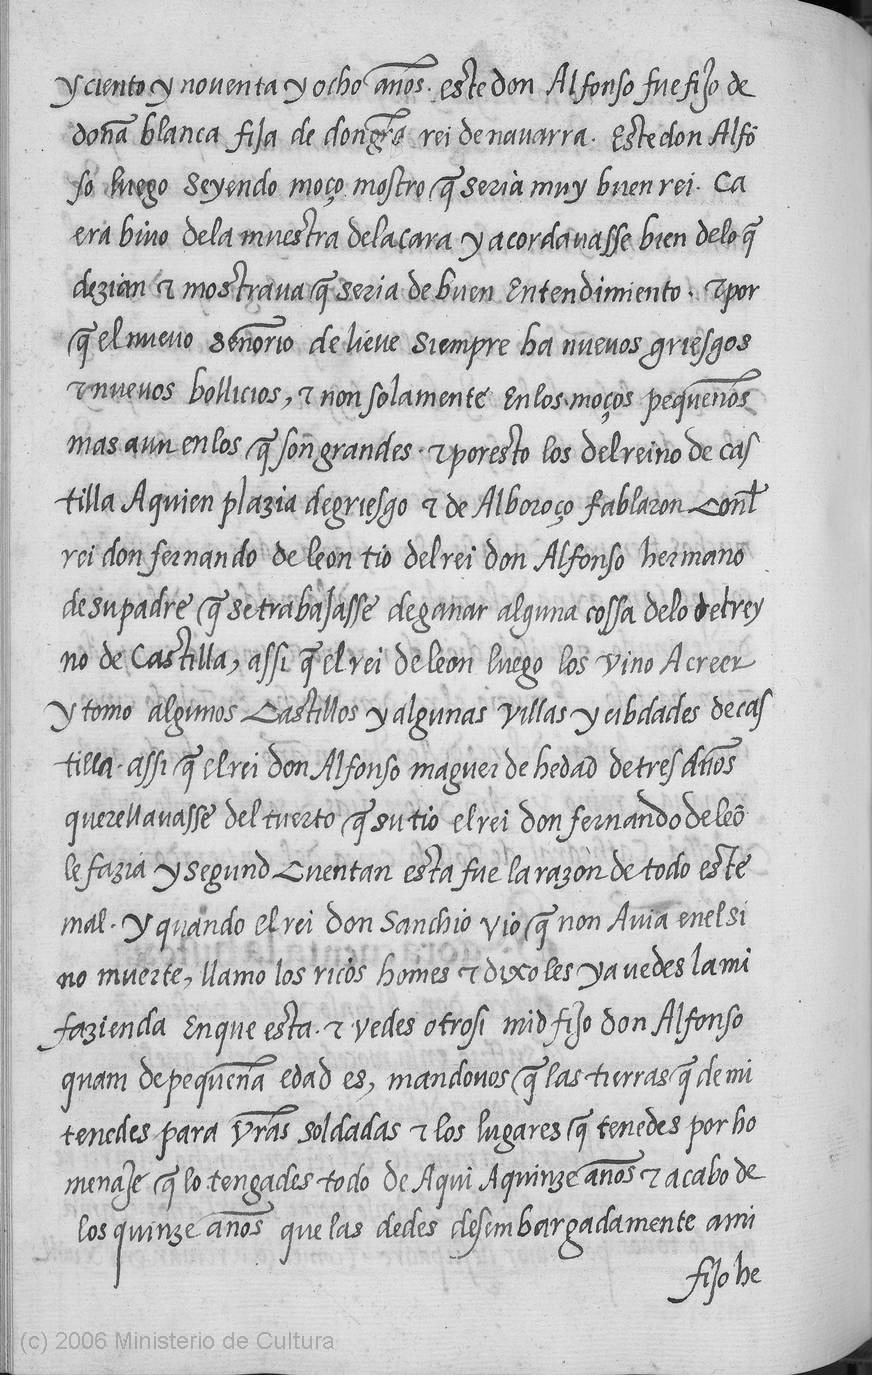 y ciento y noventa y ocho años. este don Alfonso fue fijo de
doña blanca fija de don gr̃a rei de navarra. Este don Alfõ
so luego seyendo moço mostro q̃ seria muy buen rei. Ca
era bivo dela muestra dela cara y acordavasse bien delo q̃
dezian & mostrava q̃ seria de buen Entendimiento. & por
q̃ el nuevo señorio de lieve siempre ha nuevos griesgos
& nuevos bollicios, & non solamente En los moços pequeños
mas aun en los q̃ son grandes. & por esto los del reino de cas
tilla A quien plazia de griesgo & de Alboroço fablaron Conl̃
rei don fernando de leon tio del rei don Alfonso hermano
de su padre q̃ se trabajasse de ganar alguna cossa delo del rey
no de Castilla, assi q̃ el rei de leon luego los vino A creer
y tomo algunos Castillos y algunas villas y cibdades de cas
tilla. assi q̃ el rei don Alfonso maguer de hedad de tres Años
querellavasse del tuerto q̃ su tio el rei don fernando de leõ
le fazia y segund Cuentan esta fue la razon de todo este
mal. y quando el rei don Sanchio vio q̃ non Avia en el si
no muerte, llamo los ricos homes & dixo les ya vedes la mi
fazienda En que esta. & vedes otrosi mio fijo don Alfonso
quam de pequeña edad es, mando vos q̃ las tierras q̃ de mi
tenedes para vr̃as soldadas & los lugares q̃ tenedes por ho
menaje q̃ lo tengades todo de Aqui A quinze años & acabo de
los quinze años que las dedes desembargadamente a mi
fijo he
(c) 2006 Ministerio de Cultura